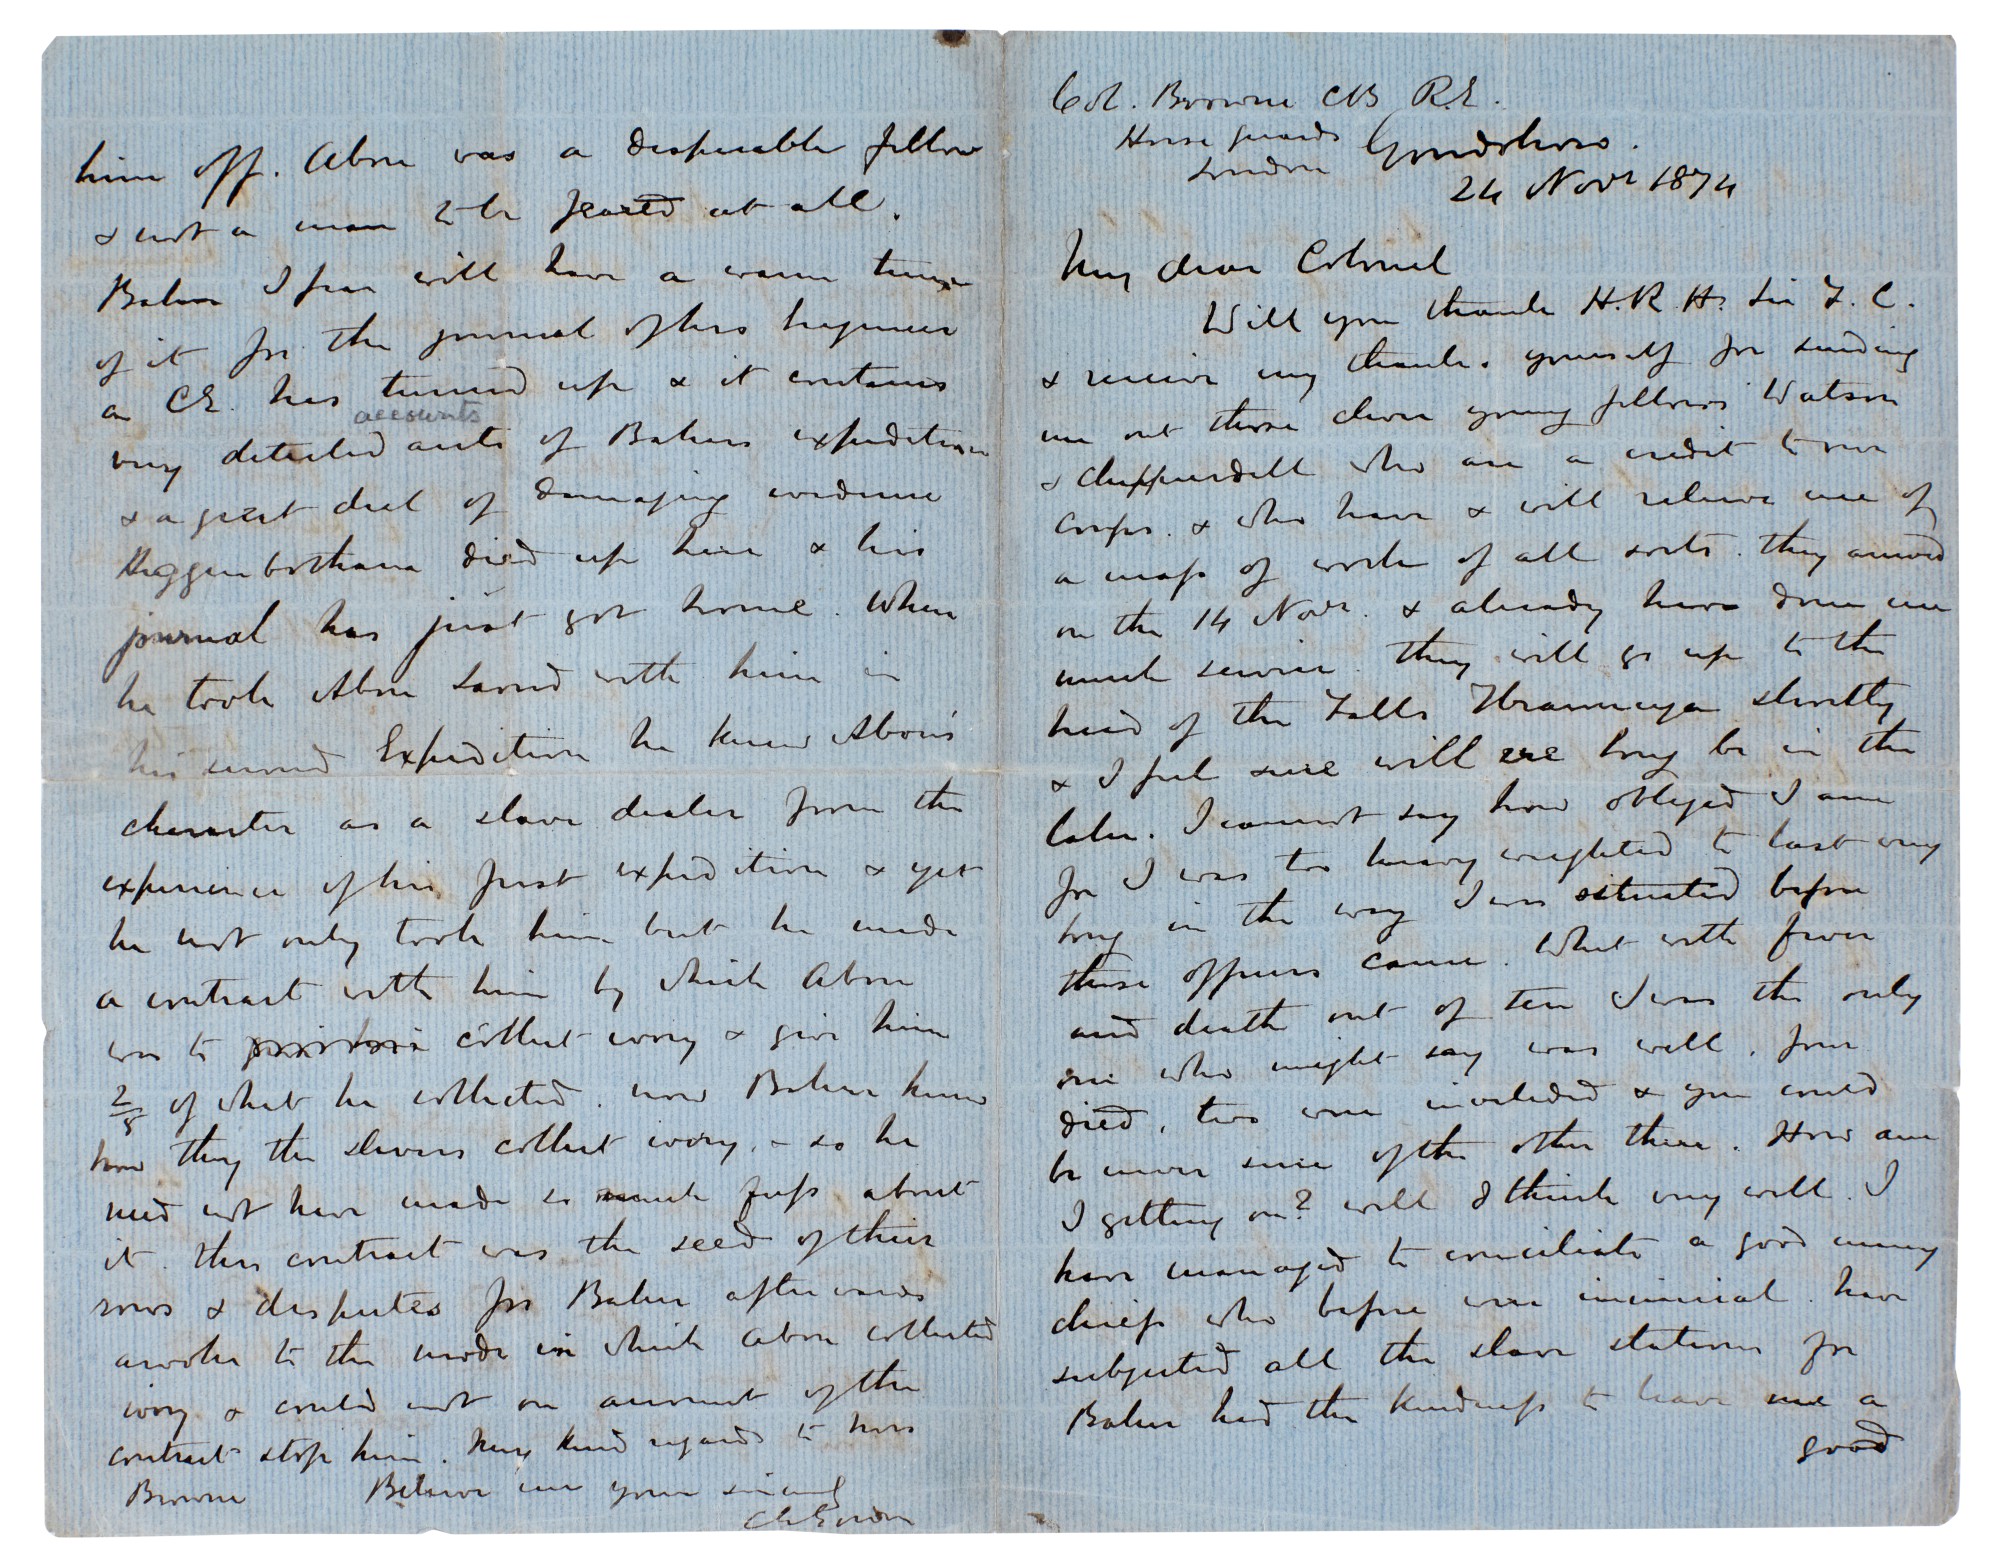 Col. Browne CB R.E.
Horse guards
London
Gondokoro.
24 Novr 1874
My dear Colonel
Will you thank H.R.H. Sir F. C.
& receive my thanks yourself for sending
me out those clever young fellows Watson
& Chippendall who are a credit to our
corps. & who have & will relieve me of
a mass of work of all sorts. they arrived
on the 14 Novr. & already have done me
much service. They will go up to the
head of the Falls shortly
& I feel sure will ere long be in the
lake. I cannot say how obliged I am
for I was too heavy weighted to last very
long in the way I was situated before
these officers came. What with fever
and death out of ten I was the only
one who might say was well. four
died, two were invalided & you could
be never sure of the other three. How am
I getting on? well I think very well. I
have managed to conciliate a good many
chiefs who before were inimical. have
subjected all the slave stations for
Baker had the kindness to leave me a
good
him off. Abou was a despicable fellow
& not a man to be feared at all.
Baker I fear will have a warm time
of it for the journal of his Engineer
a CE. has turned up & it contains
accounts
very detailed accts of Bakers expedition
& a great deal of damaging evidence
Higginbotham died up here & his
journal has just got home. When
he took Abou Saoud with him in
his second Expedition he knew Abou's
character as a slave dealer from the
experience of his first expedition & yet
he not only took him but he made
a contract with him by which Abou
was to collect ivory & give him
2/5 of what he collected. now Baker knew
how they the slavers collect ivory. - so he
need not have made so much fuss about
it. this contract was the seed of their
rows & disputes for Baker afterwards
awoke to the mode in which Abou collected
ivory & could not on account of the
contract stop him. My kind regards to Mrs
Browne Believe me yours sincerely
C. G. Gordon